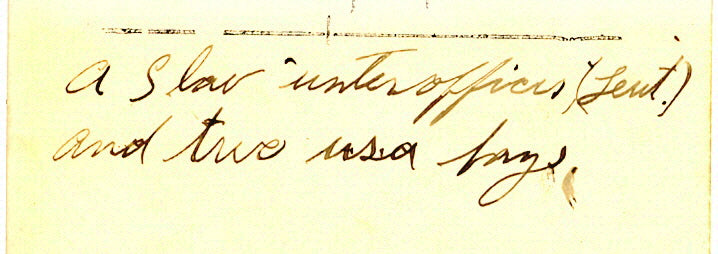 A Slav "unterofficis" (Leut.)
and two usa boys.